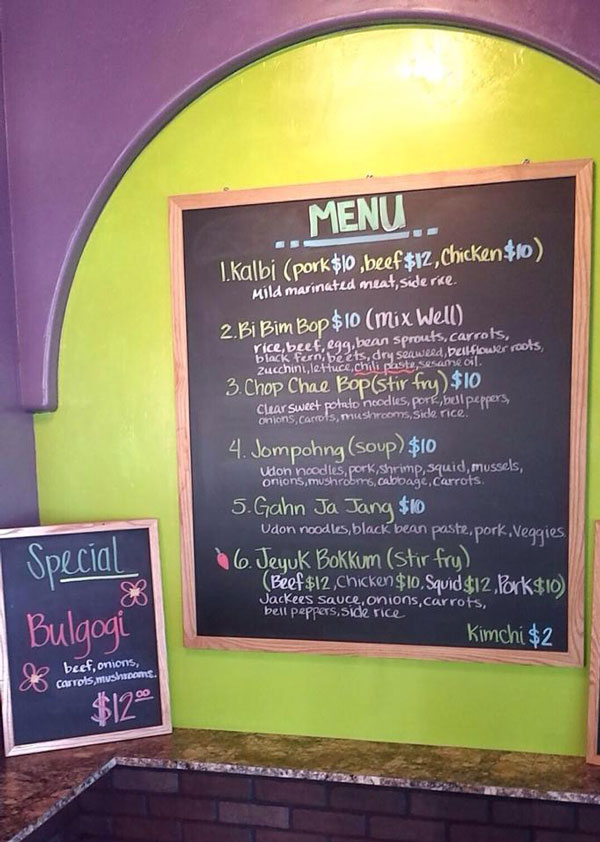 MENU
1. Kalbi (pork $10, beef $12, Chicken $10)
Mild marinated meat, side rice.
2. Bi Bim Bop $10 (Mix Well)
rice, beef, egg, bean sprouts, carrots,
black fern, beets, dry seaweed, bellflower roots,
zucchini, lettuce, chili paste, sesame oil.
3. Chop Chae Bop (stir fry) $10
Clear sweet potato noodles, pork, bell peppers,
onions, carrots, mushrooms, side rice.
4. Jompohng (soup) $10
Udon noodles, pork, shrimp, squid, mussels,
onions, mushrooms, cabbage, carrots.
5. Gahn Ja Jang $10
Udon noodles, black bean paste, pork, Veggies
6. Jeyuk Bokkum (Stir fry)
(Beef $12, Chicken $10, Squid $12, Pork $10)
Jackees sauce, onions, carrots,
bell peppers, side rice
Kimchi $2
Special
Bulgogi
beef, onions,
carrots, mushrooms.
$12.00